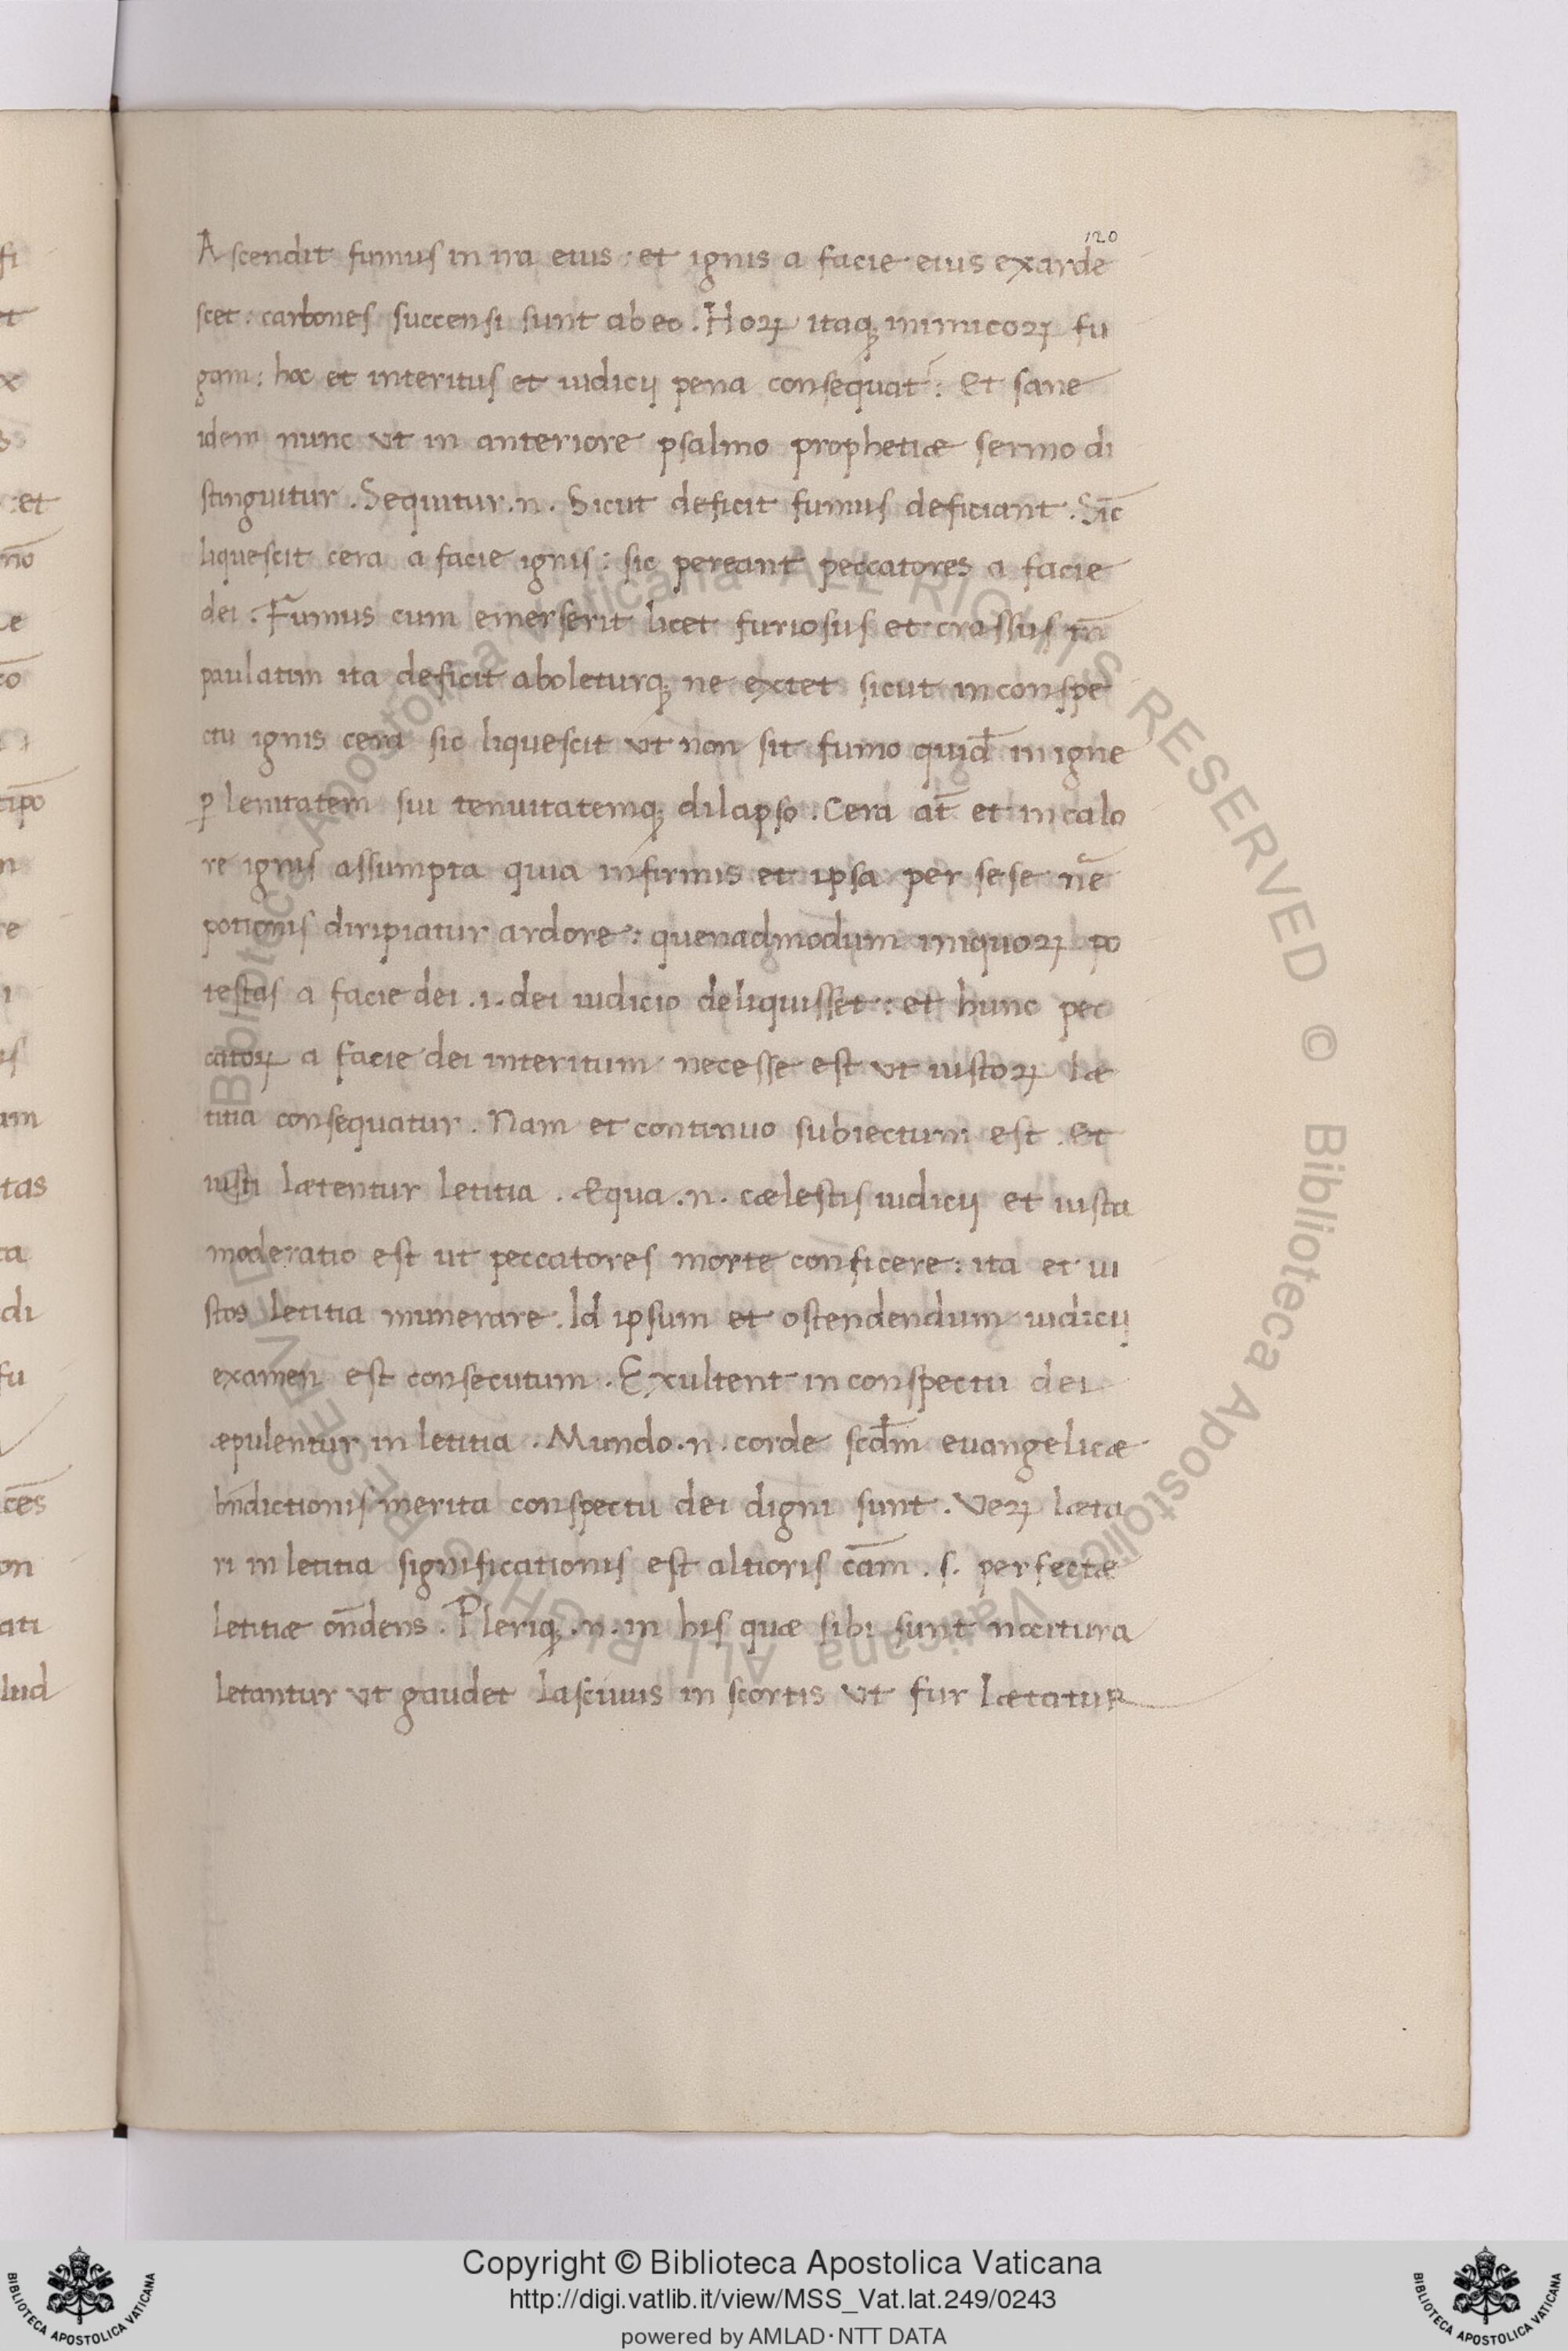 120
Ascendit fumus in ira eius : et ignis a facie eius exarde
scet : carbones succensi sunt ab eo . Hoꝝ itaqꝫ inimicoꝝ fu
gam : hoc et interitus et iudicij pena consequat᷑ : Et sane
idem nunc vt in anteriore psalmo prophetiæ sermo di
stinguitur . Sequitur .n. Sicut deficit fumus deficiant . Sic̄
liquescit cera a facie ignis : sic pereant peccatores a facie
dei . Fumus cum emerserit licet furiosus et crassus tn̄
paulatim ita deficit aboleturqꝫ ne extet sicut in conspe
ctu ignis cera sic liquescit vt non sit fumo quid̄ in igne
ꝑ lenitatem sui tenuitatemqꝫ dilapso . Cera at̄ et in calo
re ignis assumpta quia infirmis et ipsa per sese
potionis diripiatur ardore : quenadmodum iniquoꝝ po
testas a facie dei .i. dei iudicio deliquisset : et hunc pec
catoꝝ a facie dei interitum necesse est vt iustoꝝ læ
titia consequatur . Nam et continuo subiectum est . Et
iusti lætentur letitia . Æqua .n. cælestis iudicij et iusta
moderatio est ut peccatores morte conficere : ita et iu
stos letitia munerare . Id ipsum et ostendendum iudicij
examen est consecutum . Exultent in conspectu dei
æpulentur in letitia . Mundo .n. corde scd̄m euangelicæ
bn̄dictionis merita conspectu dei digni sunt . Veꝝ læta
ri in letitia significationis est altioris cām . s. perfectæ
letitiæ on̄dens . Pleriqꝫ .n. in his quæ sibi sunt nocitura
letantur vt gaudet lasciuus in scortis vt fur lætatur
Copyright © Biblioteca Apostolica Vaticana
http://digi.vatlib.it/view/MSS_Vat.lat.249/0243
powered by AMLAD·NTT DATA